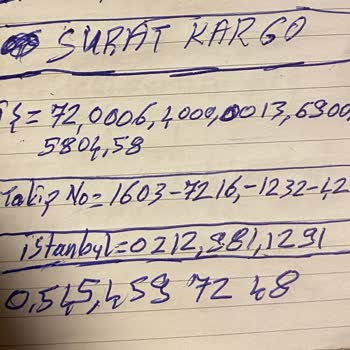 SURAT KARGO
= 72,0006,4000,0013,6900,
5804,58
Takip No = 1603-7216,-1232-42
istanbul = 0212,981,1291
0,545,459 72 48